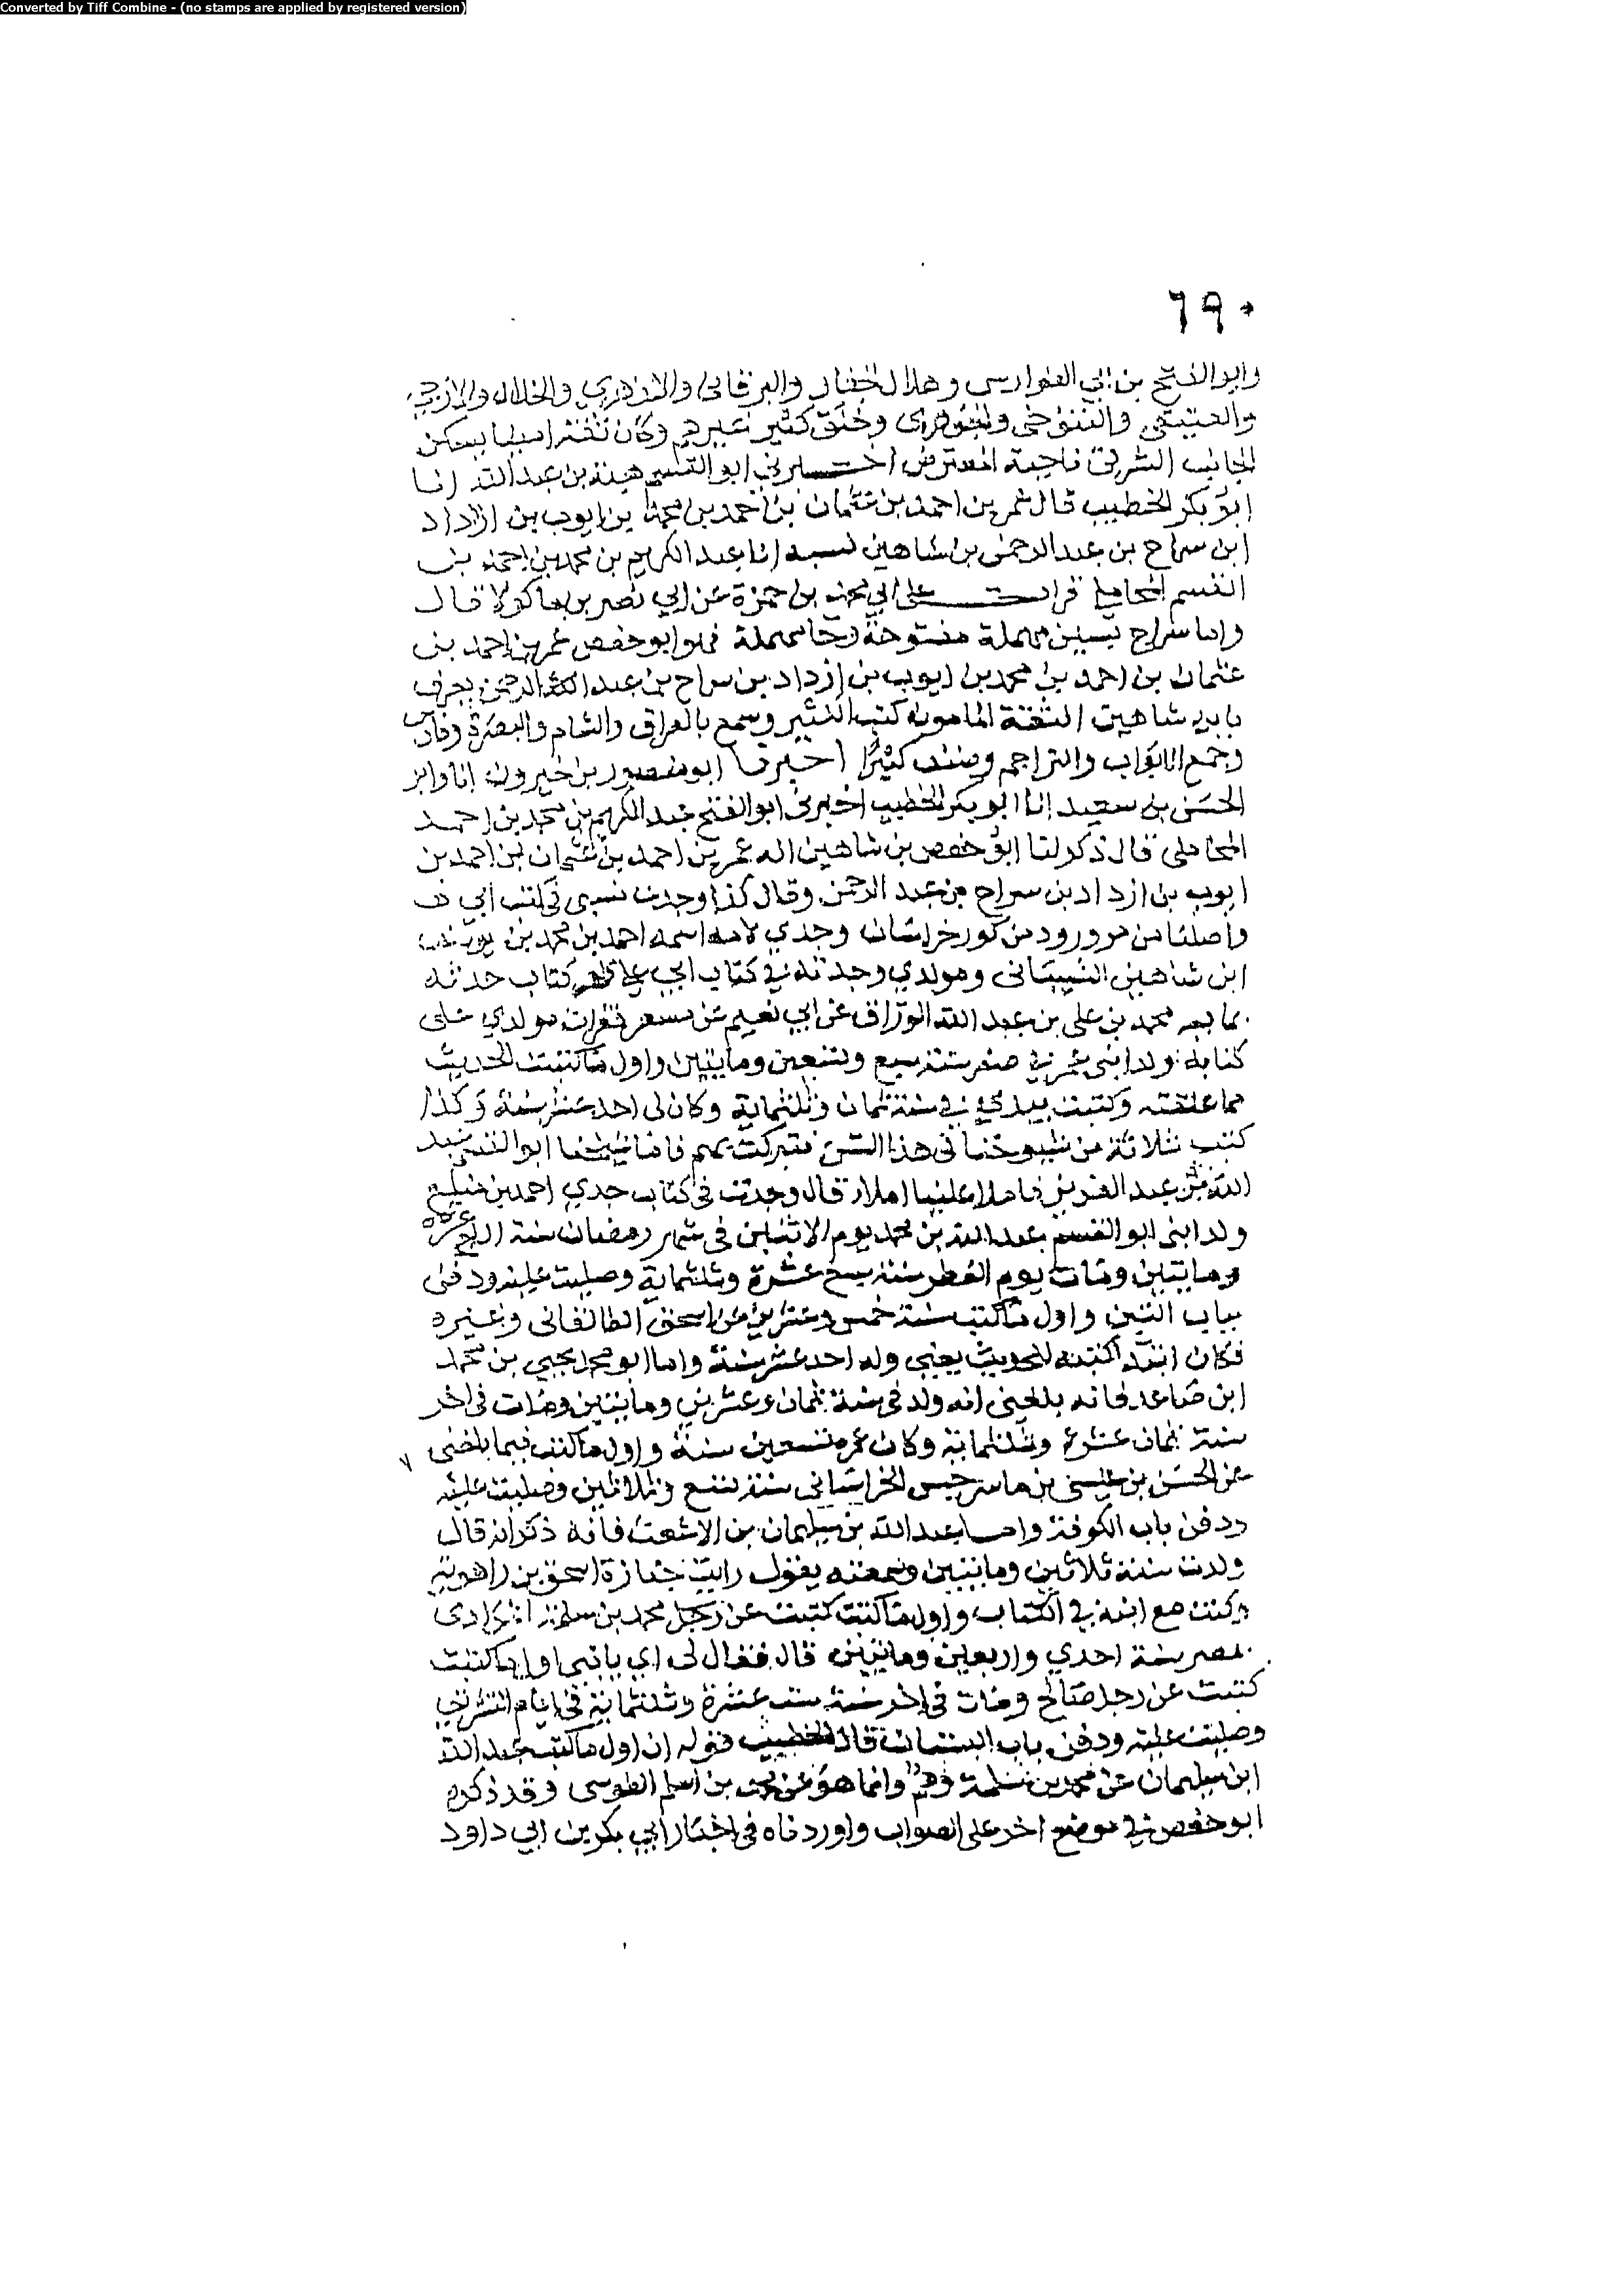 Converted by Tiff Combine - (no stamps are applied by registered version)
٦٩٠
وابو الفتح بن ابي الفوارس وهلال الحفار والبرقاني والازهري والخلال والازجي
والعتيقي والتنوخي والجوهري وخلق كثير غيرهم وكان ثقة امينا يسكن
الجانب الشرقي ناحية المعترض اخبرني ابو القسم هبة بن عبد الله انا
ابو بكر الخطيب قال عمر بن احمد بن عثمان بن احمد بن محمد بن ايوب بن ازداد
ابن سراح بن عبد الرحمن بن شاهين نسبه انا عبد الكريم بن محمد بن احمد بن
القسم المحاملي قرات على ابي محمد بن حمزة عن ابي نصر بن ماكولا قال
واما سراح بسين مهملة مفتوحة وحا مهملة فهو ابو حفص عمر بن احمد بن
عثمان بن احمد بن محمد بن ايوب بن ازداد بن سراح بن عبد الرحمن يعرف
بابن شاهين الثقة المامون كتب الكثير وسمع بالعراق والشام والبصرة وفارس
وجمع الابواب والتراجم وصنف كثيرا اخبرنا ابو منصور بن خيرون انا وابو
الحسن بن سعيد انا ابو بكر الخطيب اخبرني ابو الفتح عبد الكريم بن محمد بن احمد
المحاملي قال ذكر لنا ابو حفص بن شاهين انه عمر بن احمد بن عثمان بن احمد بن
ايوب بن ازداد بن سراح بن عبد الرحمن وقال كذا وجدت نسبي في كتب ابي
واصلنا من مرورود من كور خراسان وجدي لامه اسمه احمد بن محمد بن يوسف
ابن شاهين الشيباني ومولدي وجدته في كتاب ابي على ظهر كتاب حدثه
به محمد بن علي بن عبد الله الوراق عن ابي نعيم عن مسعر فقرات مولدي على
كتابه ولد ابني عمر في صفر سنة سبع وتسعين ومايتين واول ما كتبت الحديث
مما علقته وكتبت بيدي في سنة ثمان وثلثماية وكان لي احد عشر سنة وكذا
كتب ثلاثة من شيوخنا في هذا السن فتبركت بهم فاما شيخنا ابو القسم عبد
الله بن عبد العزيز فاملا علينا املا قال وجدت في كتاب جدي احمد بن منيع
ولد ابني ابو القسم عبد الله بن محمد يوم الاثنين في شهر رمضان سنة اربع عشرة
ومايتين ومات يوم الفطر سنة سبع عشرة وثلثماية وصليت عليه ودفن
بباب التين واول ما كتب سنة خمس وعشرين عن اسحق الطالقاني وغيره
فكان ابتدا كتبه للحديث يعني وله احد عشر سنة واما ابو محمد يحيى بن محمد
ابن صاعد فانه بلغني انه ولد في سنة ثمان وعشرين ومايتين ومات في اخر
سنة ثمان عشرة وثلثماية وكان عمره تسعين سنة واول ما كتب فيما بلغني
عن الحسن بن عيسى بن ماسرجس الخراساني سنة تسع وثلاثين وصليت عليه
ودفن باب الكوفة واما عبد الله بن سليمان بن الاشعث فانه ذكر انه قال
ولدت سنة ثلاثين ومايتين وسمعته يقول رايت جنازة اسحق بن راهويه
وكنت مع ابنه في الكتاب واول ما كتبت كتبت عن رجل محمد بن سلمة المرادي
بمصر سنة احدي واربعين ومايتين قال فقال لي ابي يا بني اول ما كتبت
كتبت عن رجل صالح ومات في اخر سنة ست عشرة وثلثماية في ايام التشريق
وصليت عليه ودفن باب البستان قال الخطيب قوله ان اول ما كتب عبد الله
ابن سليمان عن محمد بن سلمة وهم وانما هو عن محمد بن اسلم الطوسي وقد ذكره
ابو حفص في موضع اخر على الصواب واوردناه في اخبار ابي بكر بن ابي داود